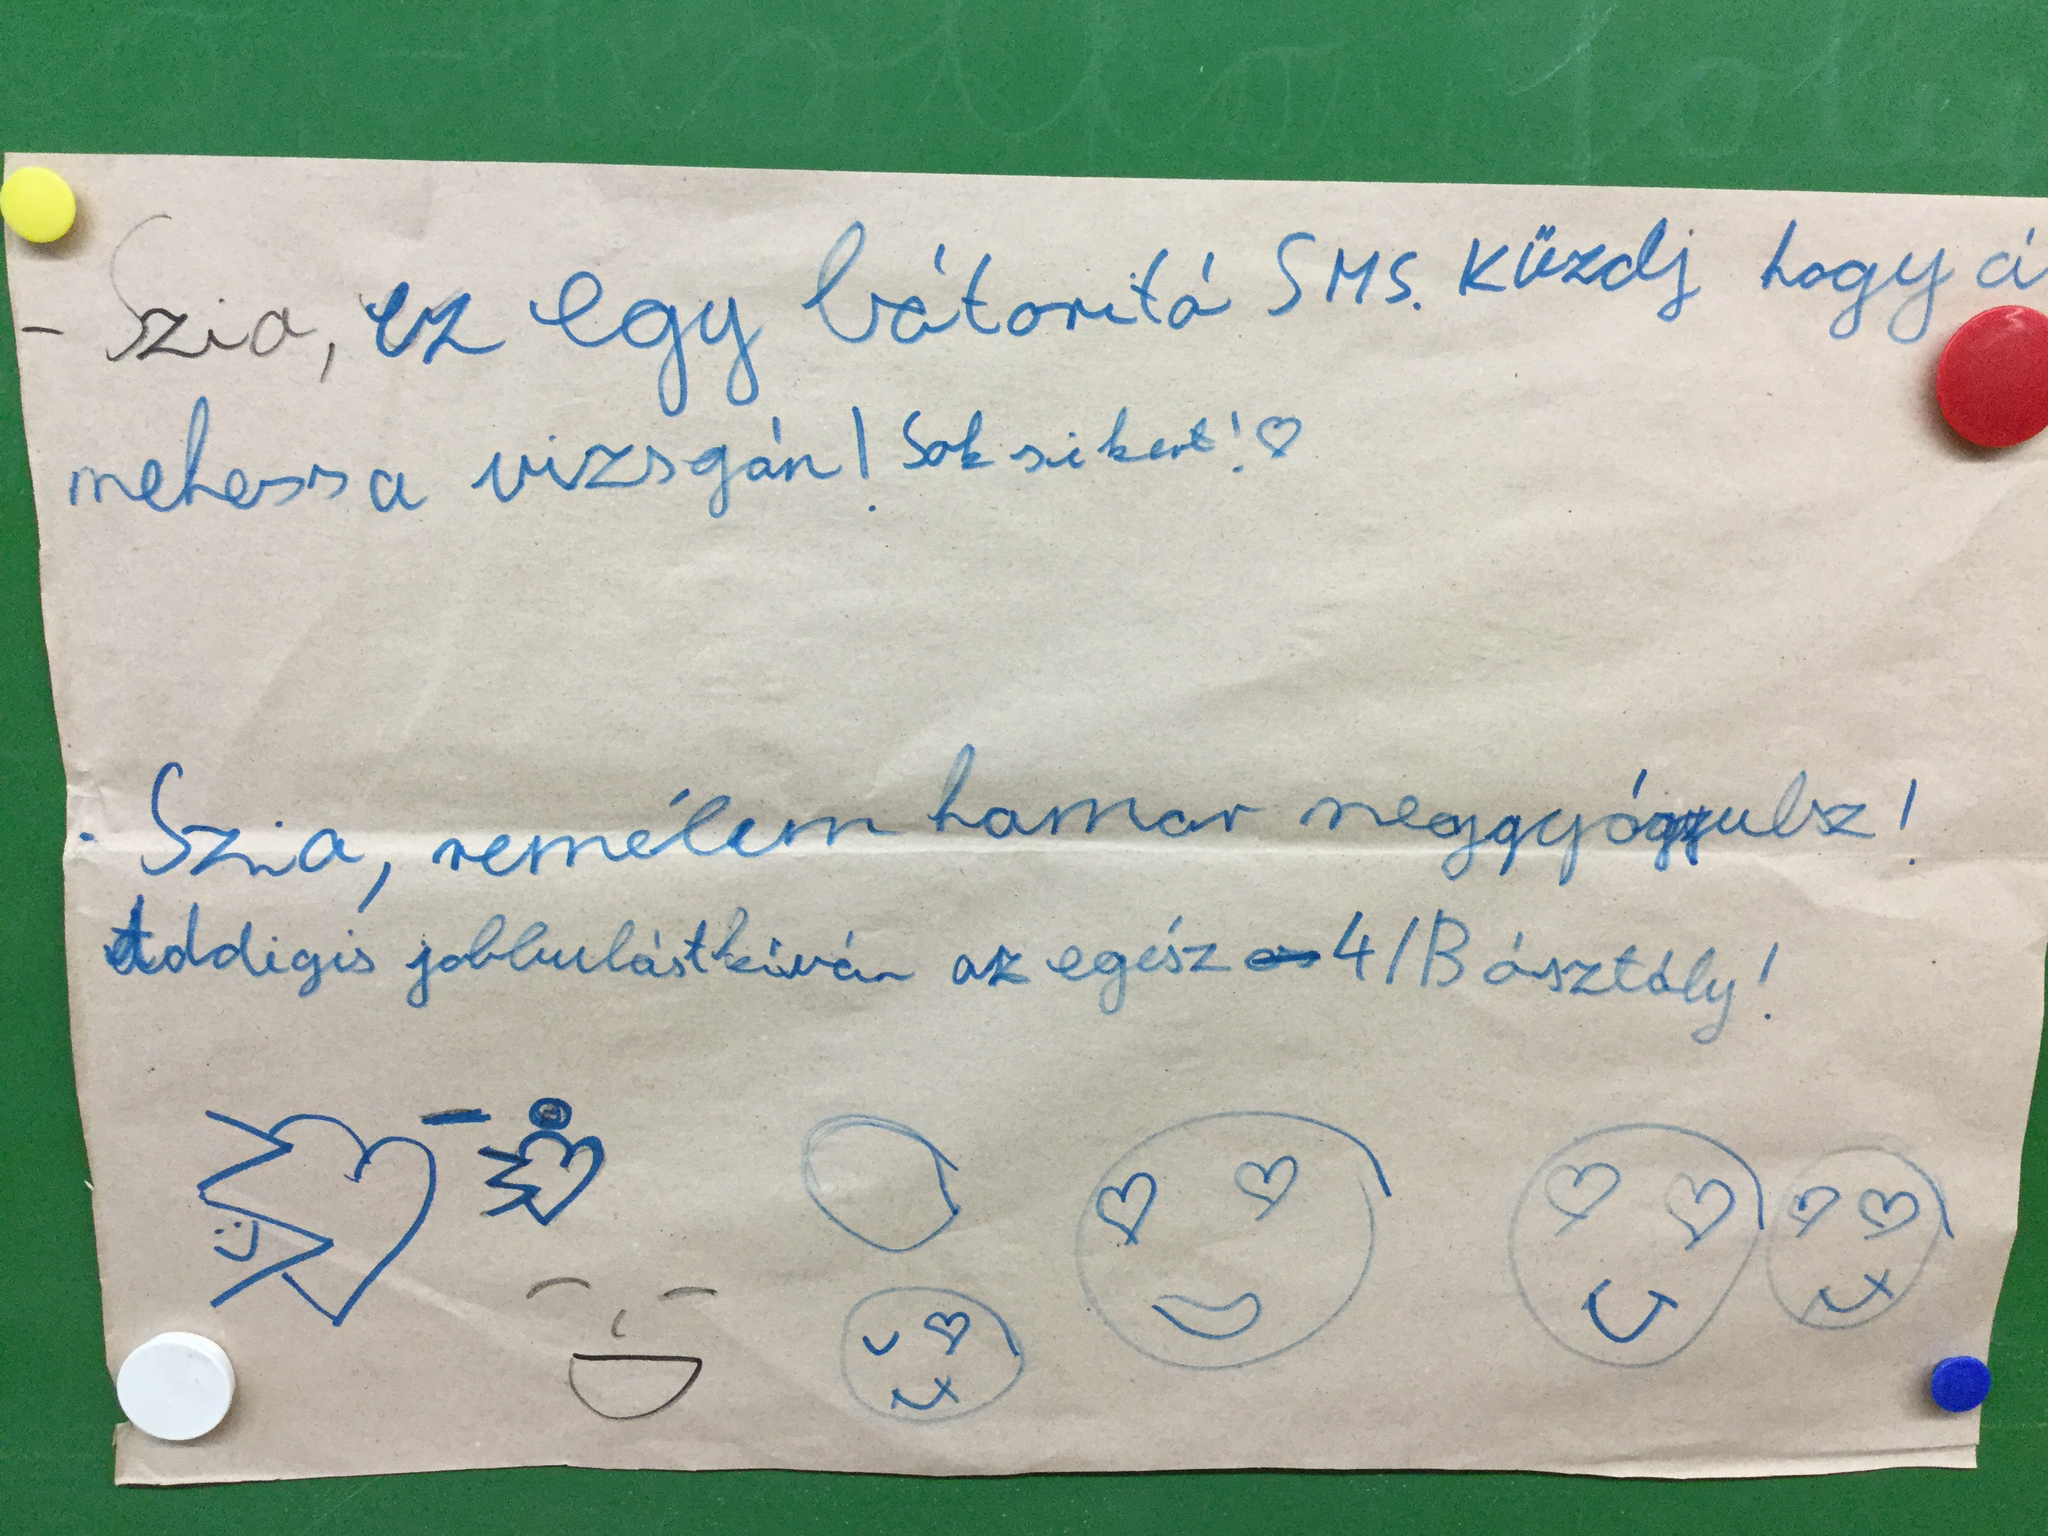 - Szia, ez egy bátorító SMS. Küzdj hogy á
mehess a vizsgán! Sok sikert! ♡
- Szia, remélem hamar meggyógyulsz!
Addigis jobbulást kíván az egész 4/B ósztály!